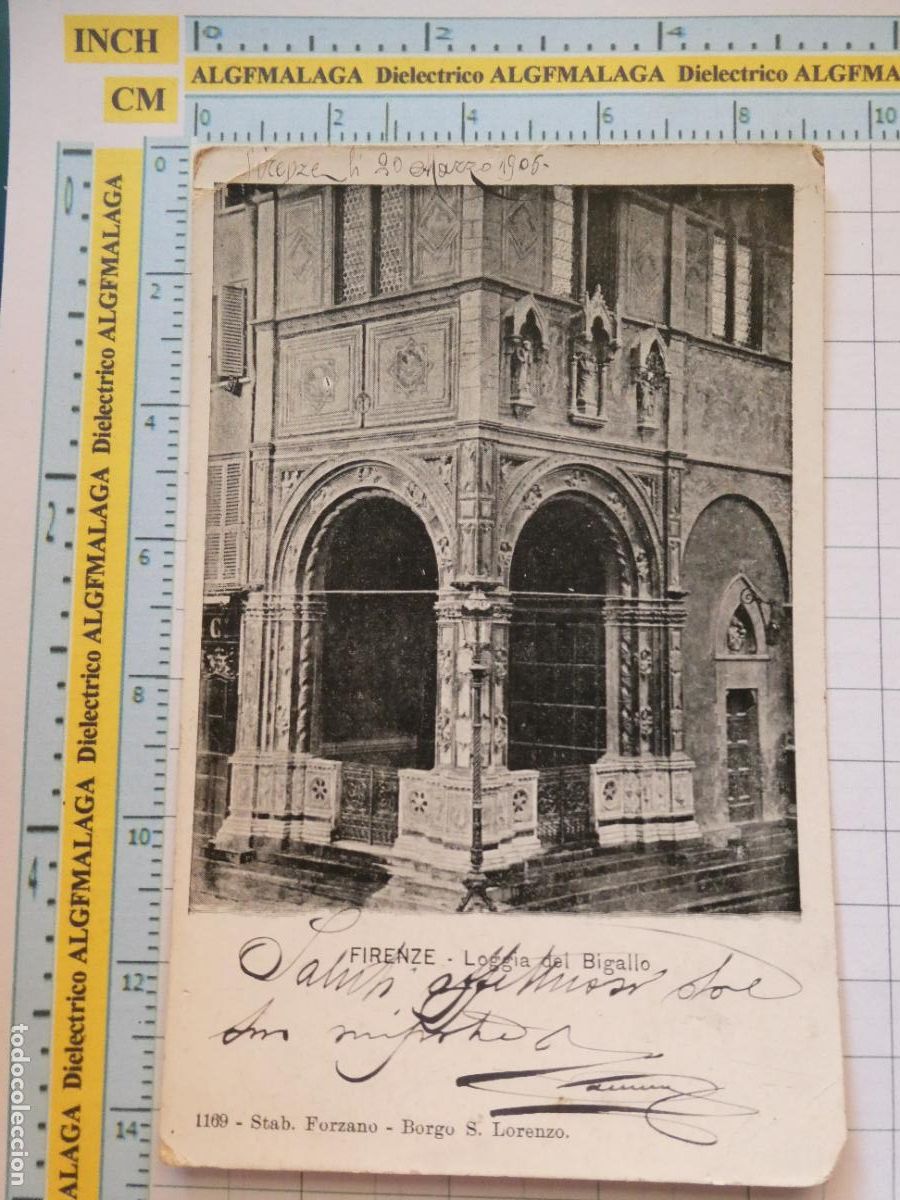 INCH
0 2 4
ALGFMALAGA Dielectrico ALGFMALAGA Dielectrico ALGFMA
CM
0 2 4 6 8 10
0 2 4
ALAGA Dielectrico ALGFMALAGA Dielectrico ALGFMALAGA Dielectrico ALGFMALAGA
0 2 4 6 8 10 12 14
Firenze li 20 Marzo 1905
FIRENZE - Loggia del Bigallo
Saluti affettuosi dal
suo nipote
1169 - Stab. Forzano - Borgo S. Lorenzo.
todocoleccion.net